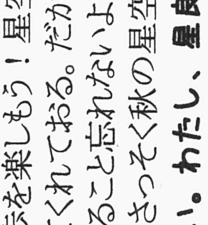 を楽しもう！星空
くれておる。だか
ること忘れないよ
さっそく秋の星空
い。わたし、星良